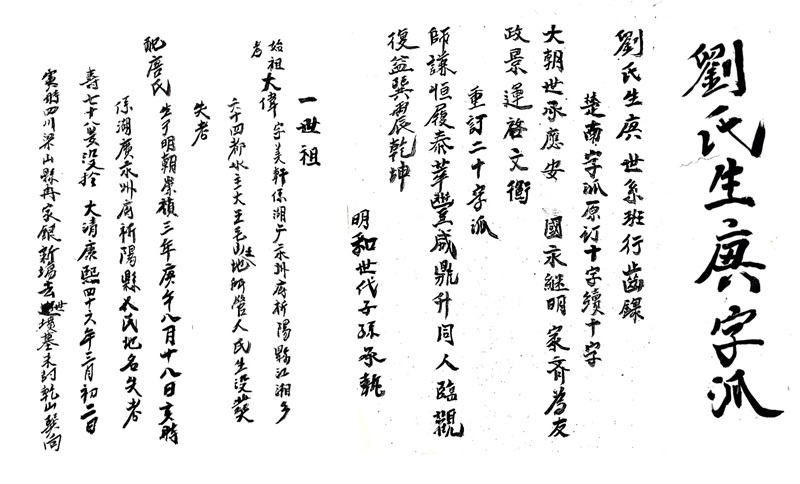 劉氏生庚字派
劉氏生庚世系班行齒錄
楚南字派原訂十字續十字
大朝世承應安 國永繼明家齊為友
政景運啓文衡
重訂二十字派
師謙恒履泰萃豐咸鼎升同人臨觀
復益巽晋辰乾坤
明和世代子孫承執
一世祖
始祖大偉 字美軒係湖广永州府祈陽縣江湘乡
六十四都水主大王毛山地所管人民生沒葬
失考
配唐氏 生于明朝崇禎三年庚午八月十八日亥時
係湖廣永州府祈陽縣人民地名失考
壽七十八歲沒於 大清康熙四十六年三月初二日
寅時四川梁山縣冉家㘭新場去世塟墓未訂乾山巽向